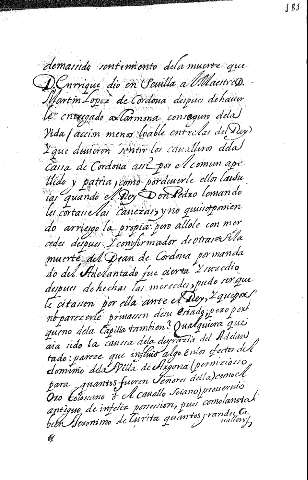 demassido sentimiento dela muerte que
D. Enrrique dio en Sevilla a Maestre D.
Martin Lopez de Cordova despues de haver
le entregado a Carmona con seguro dela
Vida (accion menos loable entre las del Rey)
y que devieron sentir los cavalleros dela
Casa de Cordova assi por el comun ape
llido y patria, como por deverle ellos las vi
das quando el Rey Don Pedro lo mando
les cortase las cavezas, y no quiso ponien
do a rriesgo la propia: pero allole con mer
cedes despues y confirmador de otras. Si la
muerte del Dean de Cordova por manda
do del Adelantado fue cierta y succedio
despues de hechas las mercedes, pudo ser que
le citasen por ella ante el Rey, y que por
no parecer le privassen de su estado; pero por
queno dela Capilla tambien? Qualquiera que
aia sido la causa dela desgracia del Adelan
tado: parece que influio algo en los efectos del
dominio dela Villa de (pernicioso
para quantos fueron Señores della) como el
Oro Tolosano o el Cavallo Seiano, proverbio
antiguo de infeliz possession, pues como lo nota
bien Geronimo de Zurita quantos grandes, Ca